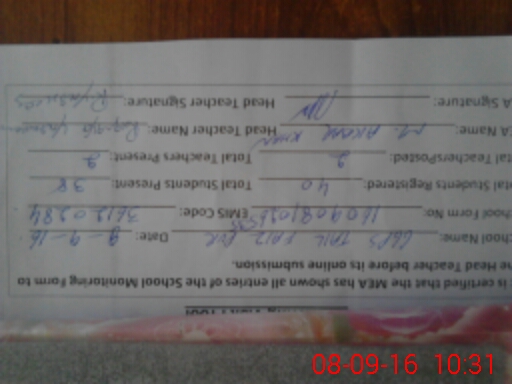 is certified that the MEA has shown all entries of the School Monitoring Form to
he Head Teacher before its online submission.
chool Name: GGPS TAIL FAIZ PUR Date: 8-9-16
chool Form No: EMIS Code: 36120284
otal Students Registered: 40 Total Students Present: 38
otal TeachersPosted: 2 Total Teachers Present: 2
EA Name: M. AKRAM KHAN Head Teacher Name:
A Signature: Head Teacher Signature:
08-09-16 10:31